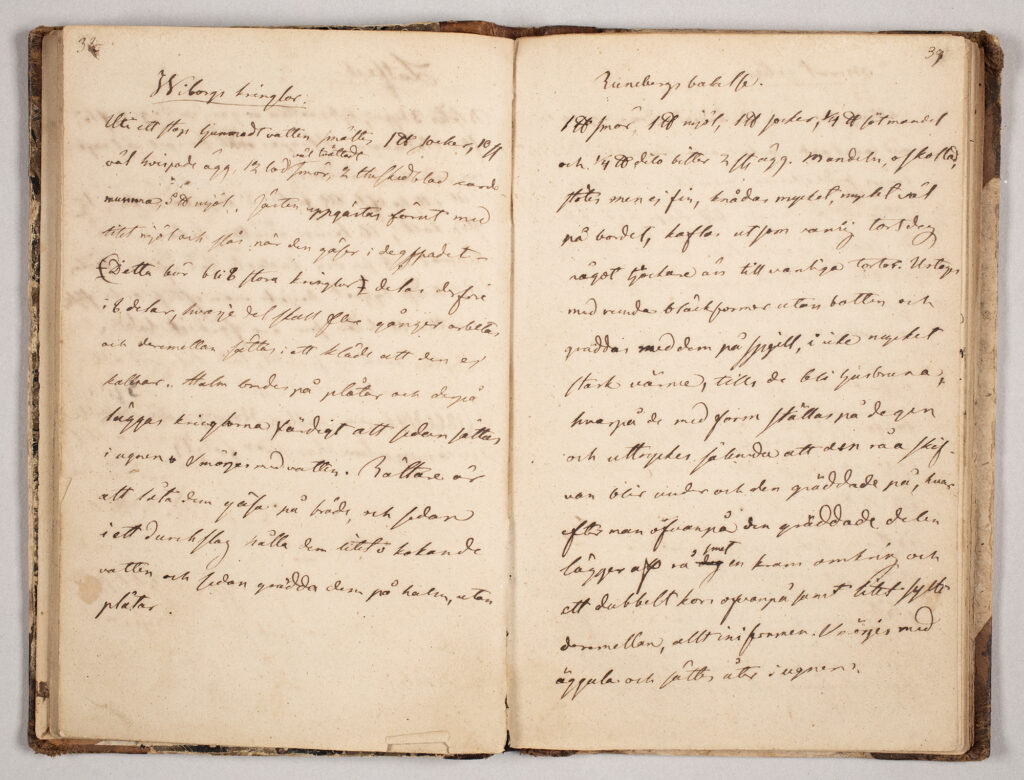 38
Wiborgs kringlor.
Uti ett stop ljummadt vatten sättes 1 ℔ socker, 10 st
väl hvispade ägg, 12 lod väl tvättadt smör, 2 theskedblad karde-
mumma, 5 ℔ mjöl. Jästen uppgästas förut med
litet mjöl och slås, när den gäser i degspadet –
(Detta bör bli 8 stora kringlor) delas derföre
i 8 delar, hvarje del skall flere gånger arbetas
och deremellan sättas i ett kläde att den ej
kallnar. Halm bredes på plåtar och derpå
läggas kringlorna färdigt att sedan sättas
i ugnen. Smörjes med vatten. Bättare är
att låta dem gäsa på bräde, och sedan
i ett durchslag hålla dem litet i kokande
vatten och sedan grädda dem på halm, utan
plåtar.
39
Runebergs bakelse.
1 ℔ smör, 1 ℔ mjöl, 1 ℔ socker, 1/4 ℔ sötmandel
och 1/4 ℔ dito bitter 2 st ägg. Mandeln, oskållad,
stötes men ej fin, knådas mycket, mycket väl
på bordet, kaflas ut som vanlig tortdeg
något tjockare än till vanliga tortor. Uttages
med runda bläckformer utan botten och
gräddas med dem på spjell, i icke mycket
stark värme, tills de bli ljusbruna,
hvarpå de med form ställas på degen
och uttryckes sålunda att den råa skif-
van blir under och den gräddade på, hvar
efter man ofvanpå den gräddade delen
lägger af rå smet en krans omkring och
ett dubbelt kors ofvanpå samt litet sylt
deremellan, allt ini formen. Smörjes med
äggula och sättes åter i ugnen.